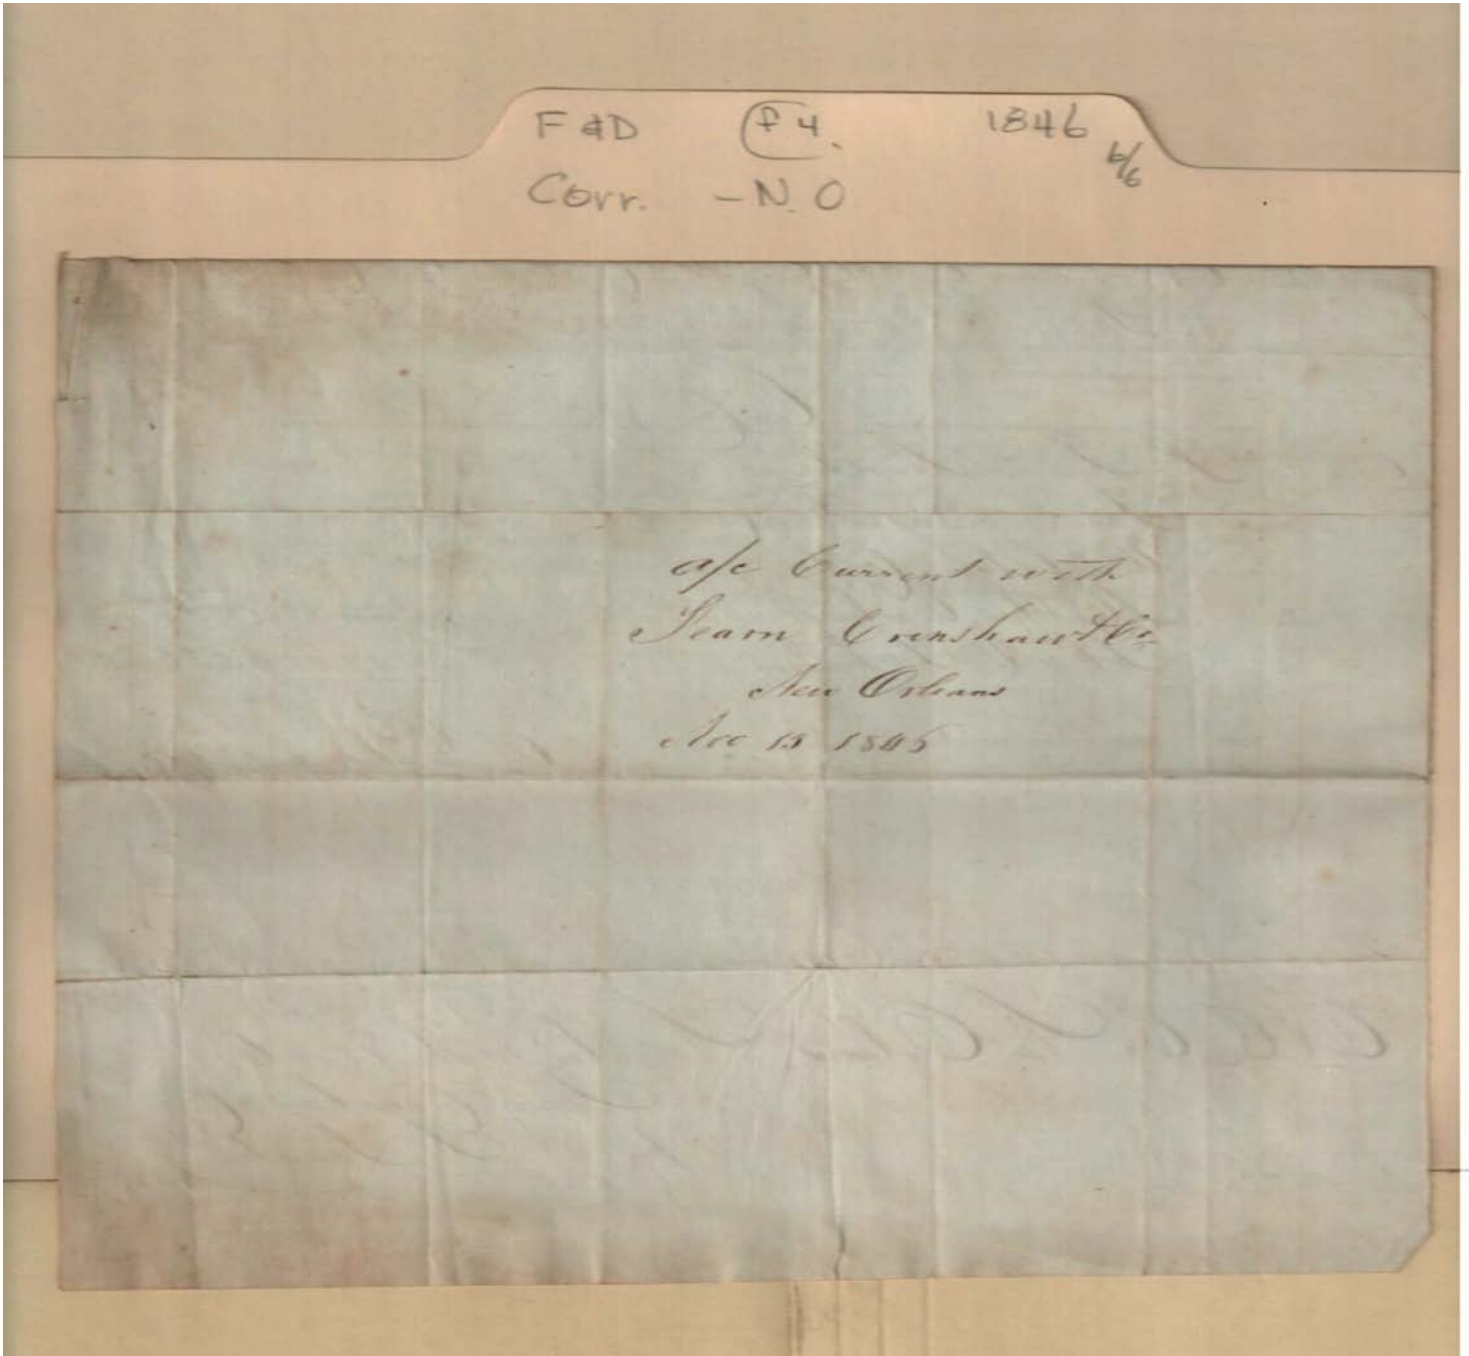 F & D f 4. 1846 6/6
Corr. - N.O
a/c Current with
Fearn Crenshaw & Co
New Orleans
15 1846